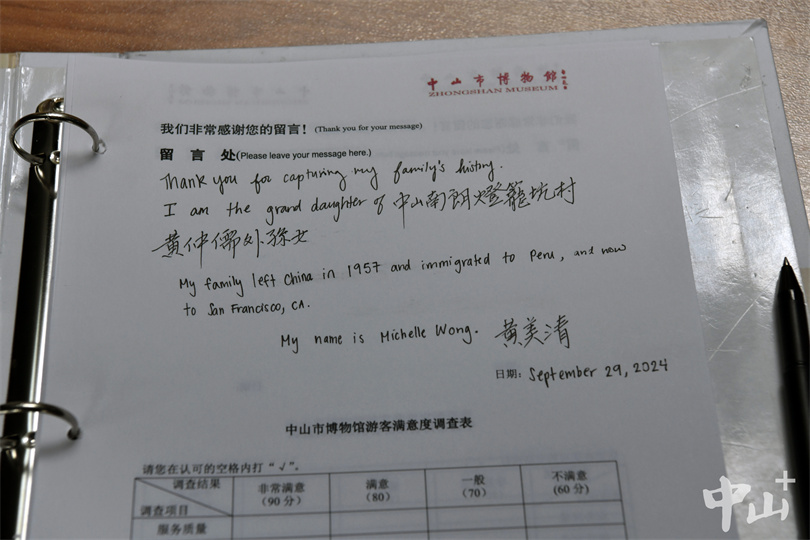 中山市博物館
ZHONGSHAN MUSEUM
我们非常感谢您的留言！(Thank you for your message)
留 言 处(Please leave your message here.)
Thank you for capturing my family's history.
I am the grand daughter of 中山南朗燈籠坑村
黄仲儒外孫女
My family left China in 1957 and immigrated to Peru, and now
to San Francisco, CA.
My name is Michelle Wong. 黄美清
日期: September 29, 2024
中山市博物馆游客满意度调查表
请您在认可的空格内打“√”。
调查结果 非常满意 满意 一般 不满意
(90 分) (80) (70) (60 分)
调查项目
服务质量
中山+